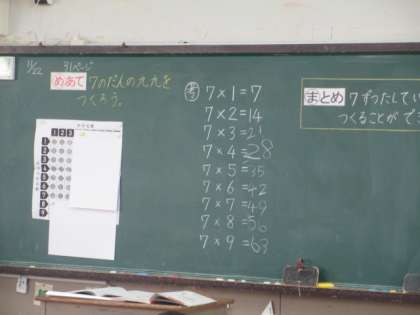 11/22
31ページ
めあて 7のだんの九九を
つくろう。
1 2 3
1
2
3
4
5
6
7
8
9
7×1=7
7×2=14
7×3=21
7×4=28
7×5=35
7×6=42
7×7=49
7×8=56
7×9=63
まとめ 7ずつたしてい
つくることができ